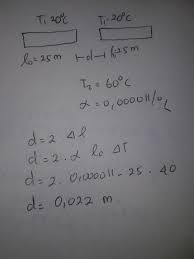 T₁=20°C T₁=20°C
l₀=25m ⊢d⊣ l₀=25m
T₂=60°C
α=0,000011/°C
d=2 Δl
d=2·α l₀ ΔT
d=2·0,000011·25·40
d=0,022 m